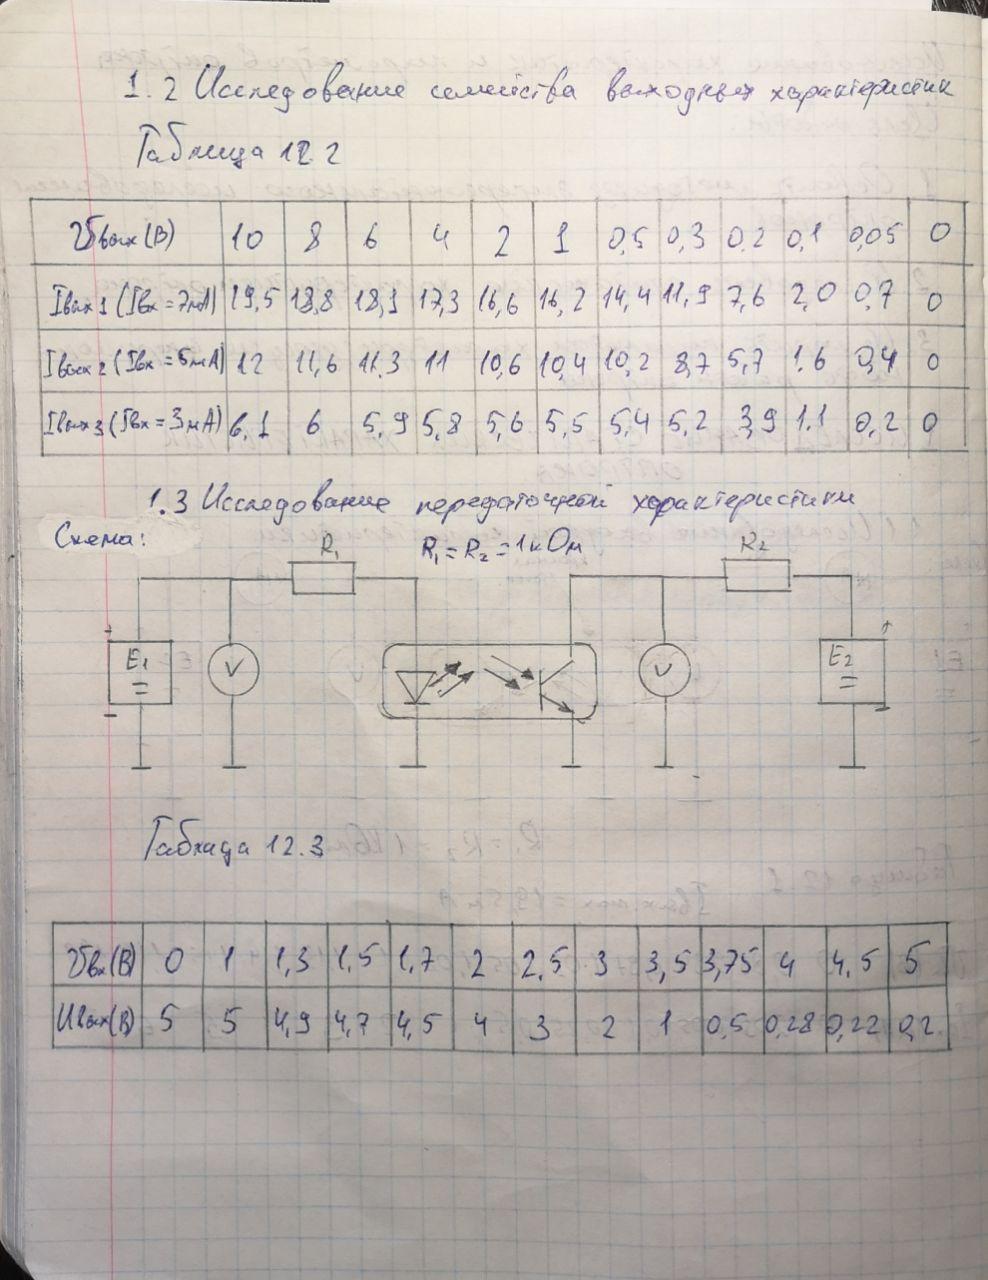 1.2 Исследование семейства выходных характеристик
Таблица 12.2
Uвых(В) 10 8 6 4 2 1 0,5 0,3 0,2 0,1 0,05 0
Iвых1 (Iвх = 7мА) 19,5 18,8 18,1 17,3 16,6 16,2 14,4 11,9 7,6 2,0 0,7 0
Iвых2 (Iвх = 5мА) 12 11,6 11,3 11 10,6 10,4 10,2 8,7 5,7 1,6 0,4 0
Iвых3 (Iвх = 3мА) 6,1 6 5,9 5,8 5,6 5,5 5,4 5,2 3,9 1,1 0,2 0
1.3 Исследование передаточной характеристики
Схема:
R1 R1 = R2 = 1кОм R2
E1 = V V E2 =
Таблица 12.3
Uвх(В) 0 1 1,3 1,5 1,7 2 2,5 3 3,5 3,75 4 4,5 5
Uвых(В) 5 5 4,9 4,7 4,5 4 3 2 1 0,5 0,28 0,22 0,2